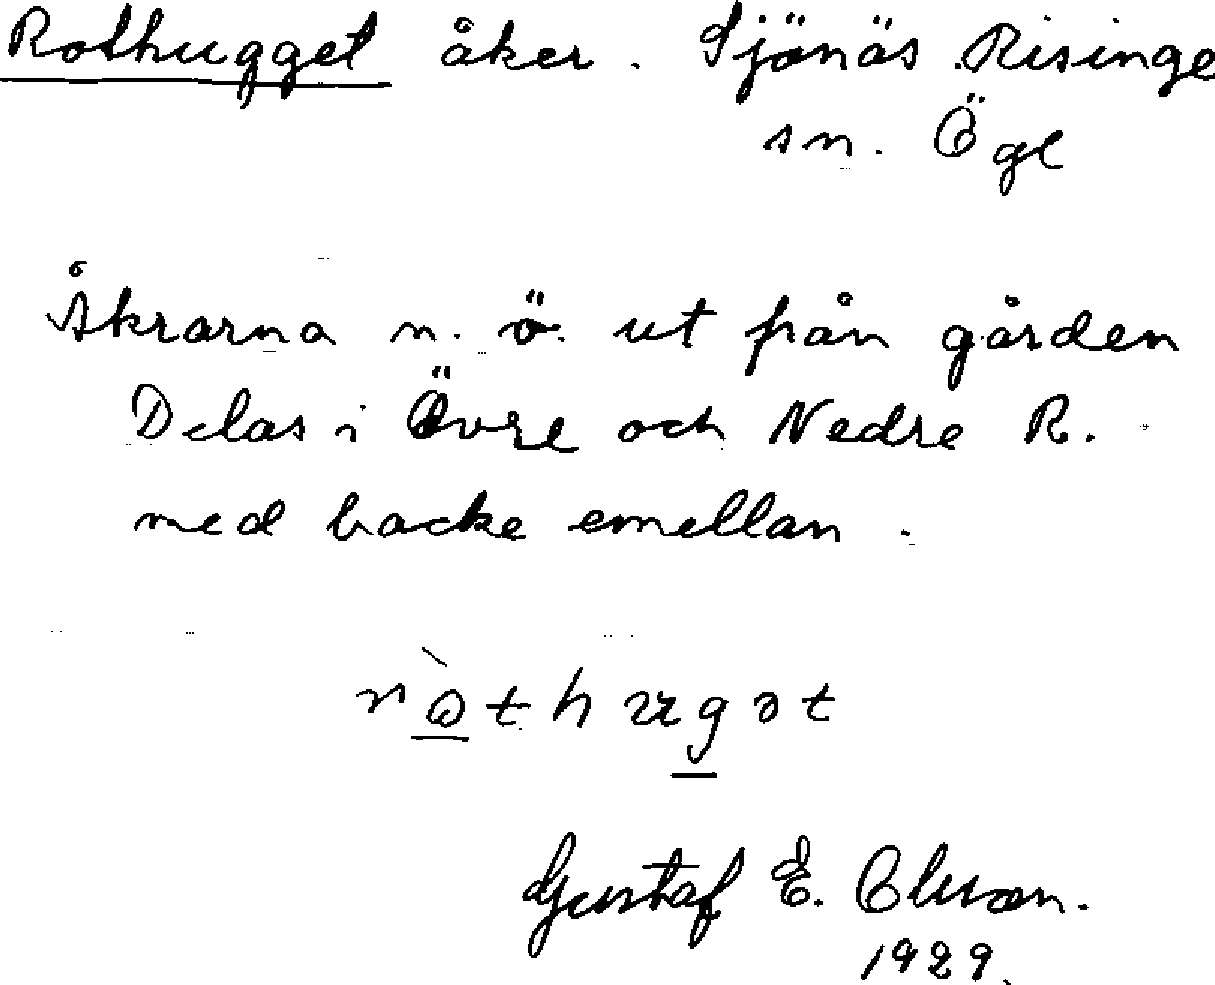 Rothugget åker. Sjönäs Risinge
sn. Ögl
Åkrarna n. ö. ut från gården
Delas i Övre och Nedre R.
med backe emellan.
Gustaf E.
1929.